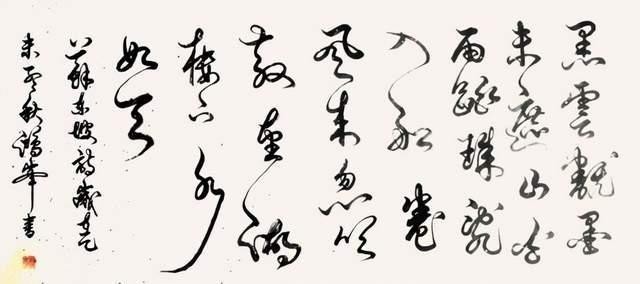 黑雲翻墨
未遮山白
雨跳珠亂
入船卷
風來忽吹
散望湖
樓下水
如天
蘇東坡詩歲在乙
未秋峰書